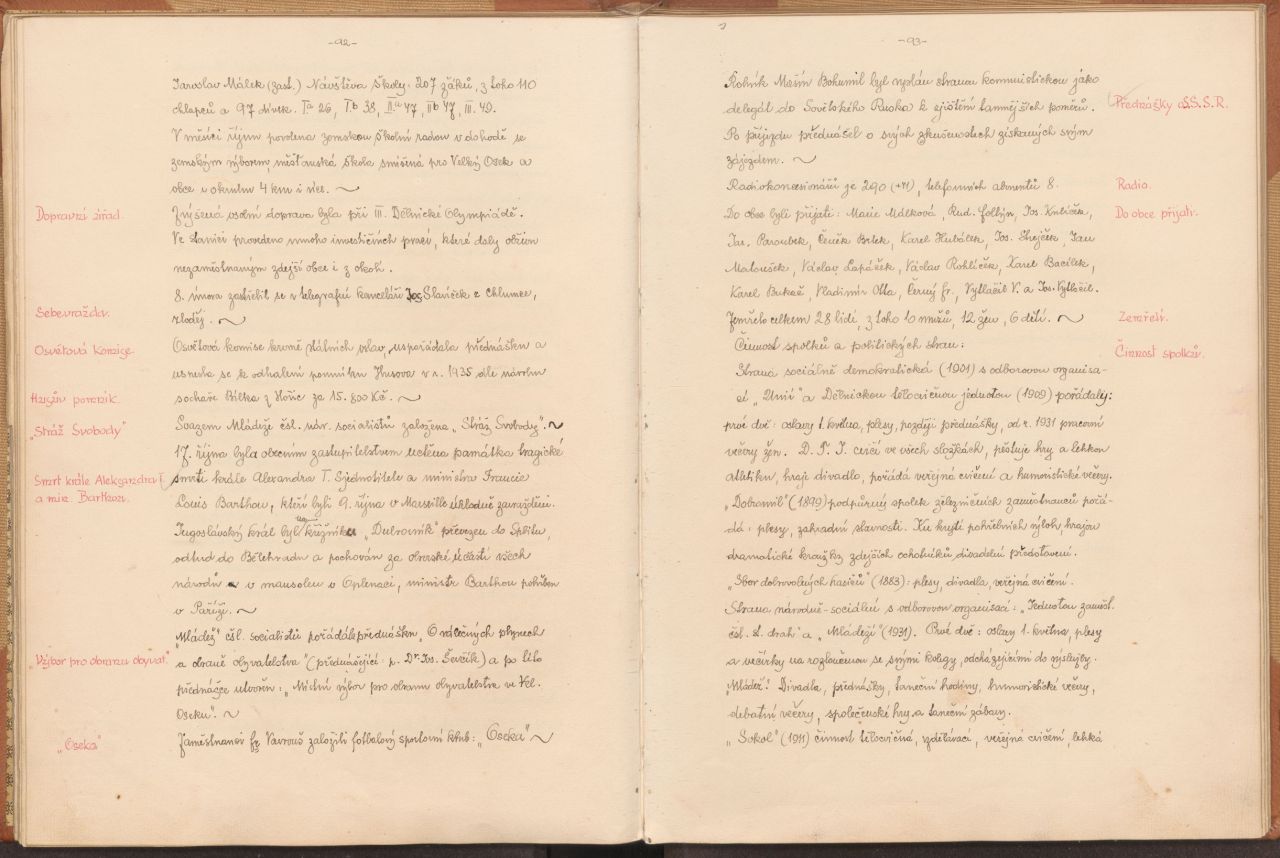 -92-
Jaroslav Málek (zast.) Návštěva školy: 207 žáků, z toho 110
chlapců a 97 dívek. I.a 26, I.b 38, II.a 47, II.b 47, III. 49.
V měsíci říjnu povolena zemskou školní radou v dohodě se
zemským výborem, měšťanská škola smíšená pro Velký Osek a
obce v okruhu 4 km i více.
Dopravní úřad.
Zvýšená osobní doprava byla při III. Dělnické Olympiádě.
Ve stanici provedeno mnoho investičních prací, které daly obživu
nezaměstnaným zdejší obce i z okolí.
8. února zastřelil se v telegrafní kanceláři Jos. Slavíček z Chlumce,
Sebevražda.
zloděj.
Osvětová Komise.
Osvětová komise kromě státních oslav, uspořádala přednášku a
usnesla se k odhalení pomníku Husova v r. 1935 dle návrhu
Husův pomník.
sochaře Bílka z Hořic za 15.800 Kč.
"Stráž Svobody"
Svazem Mládeže čsl. nár. socialistů založena „Stráž Svobody".
17. října byla obecním zastupitelstvem uctěna památka tragické
Smrt krále Aleksandra I.
smrti krále Alexandra I. Sjednotitele a ministra Francie
a min. Barthou.
Louis Barthou, kteří byli 9. října v Marseille úkladně zavražděni.
Jugoslávský král byl na křižníku „Dubrovník" převezen do Splitu,
odtud do Bělehradu a pochován za obrovské účasti všech
národů v mausoleu v Oplenaci, ministr Barthou pohřben
v Paříži.
„Mládež" čsl. socialistů pořádala přednášku „O válečných plynech
Výbor pro obranu obyvat.
a obraně obyvatelstva" (přednášející: p. Dr. Jos. Ševčík) a po této
přednášce utvořen: „Místní výbor pro obranu obyvatelstva ve Vel.
Oseku".
„Oseka"
Zaměstnanci fy Vavrouš založili fotbalový sportovní klub: „Oseka"
-93-
Rolník Mašín Bohumil byl vyslán stranou komunistickou jako
delegát do Sovětského Ruska k zjištění tamnějších poměrů.
Přednášky o S.S.S.R.
Po příjezdu přednášel o svých zkušenostech získaných svým
zájezdem.
Radiokoncesionářů je 290 (+41), telefonních abonentů 8.
Radio.
Do obce byli přijati: Marie Málková, Rud. Foltýn, Jos. Knlíček,
Do obce přijati.
Jar. Paroubek, Čeněk Brlek, Karel Hubálek, Jos. Ehejček, Jan
Matoušek, Václav Lopáček, Václav Rohlíček, Karel Bacílek,
Karel Bukač, Vladimír Otta, Černý Fr., Vytlačil V. a Jos. Vytlačil.
Zemřelo celkem 28 lidí, z toho 10 mužů, 12 žen, 6 dětí.
Zemřelí.
Činnost spolků a politických stran:
Činnost spolků.
Strana sociálně demokratická (1901) s odborovou organisa-
cí „Unií" a Dělnickou tělocvičnou jednotou (1909) pořádaly:
prvé dvě: oslavy 1. května, plesy, později přednášky, od r. 1931 pracovní
večery žen. D. T. J. cvičí ve všech složkách, pěstuje hry a lehkou
atletiku, hraje divadla, pořádá veřejná cvičení a humoristické večery.
„Dobromil" (1899) podpůrný spolek železničních zaměstnanců pořá-
dá: plesy, zahradní slavnosti. Ku krytí pohřebních výloh, hrajou
dramatické kroužky zdejších ochotníků divadelní představení.
„Sbor dobrovolných hasičů" (1883): plesy, divadla, veřejná cvičení.
Strana národně-sociální s odborovou organisací: „Jednotou zaměst.
čsl. st. drah" a „Mládeží" (1931). Prvé dvě: oslavy 1. května, plesy
a večírky na rozloučenou se svými kolegy, odcházejícími do výslužby.
„Mládež": Divadla, přednášky, taneční hodiny, humoristické večery,
debatní večery, společenské hry a taneční zábavy.
„Sokol" (1911) činnost tělocvičná, vzdělávací, veřejná cvičení, lehká